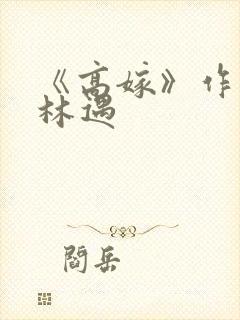 《高嫁》作
林遇
閻岳